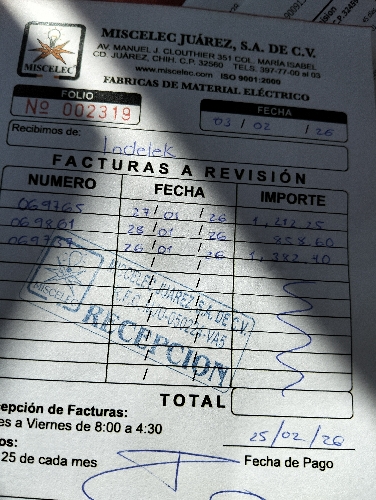 MISCELEC JUÁREZ, S.A. DE C.V.
AV. MANUEL J. CLOUTHIER 351 COL. MARÍA ISABEL
CD. JUÁREZ, CHIH. C.P. 32560 TELS. 397-77-00 al 03
www.miscelec.com ISO 9001:2000
MISCELEC
FABRICAS DE MATERIAL ELÉCTRICO
FOLIO
Nº 002319
FECHA
03 / 02 / 26
Recibimos de:
Indelek
FACTURAS A REVISIÓN
NUMERO FECHA IMPORTE
069765 27/01/26 1,212.25
069861 28/01/26 858.60
26/01/26 1,382.40
MISCELEC JUAREZ S.A. DE C.V.
MISCELEC
RECEPCION
TOTAL
cepción de Facturas:
es a Viernes de 8:00 a 4:30
os:
25 de cada mes
25/02/26
Fecha de Pago